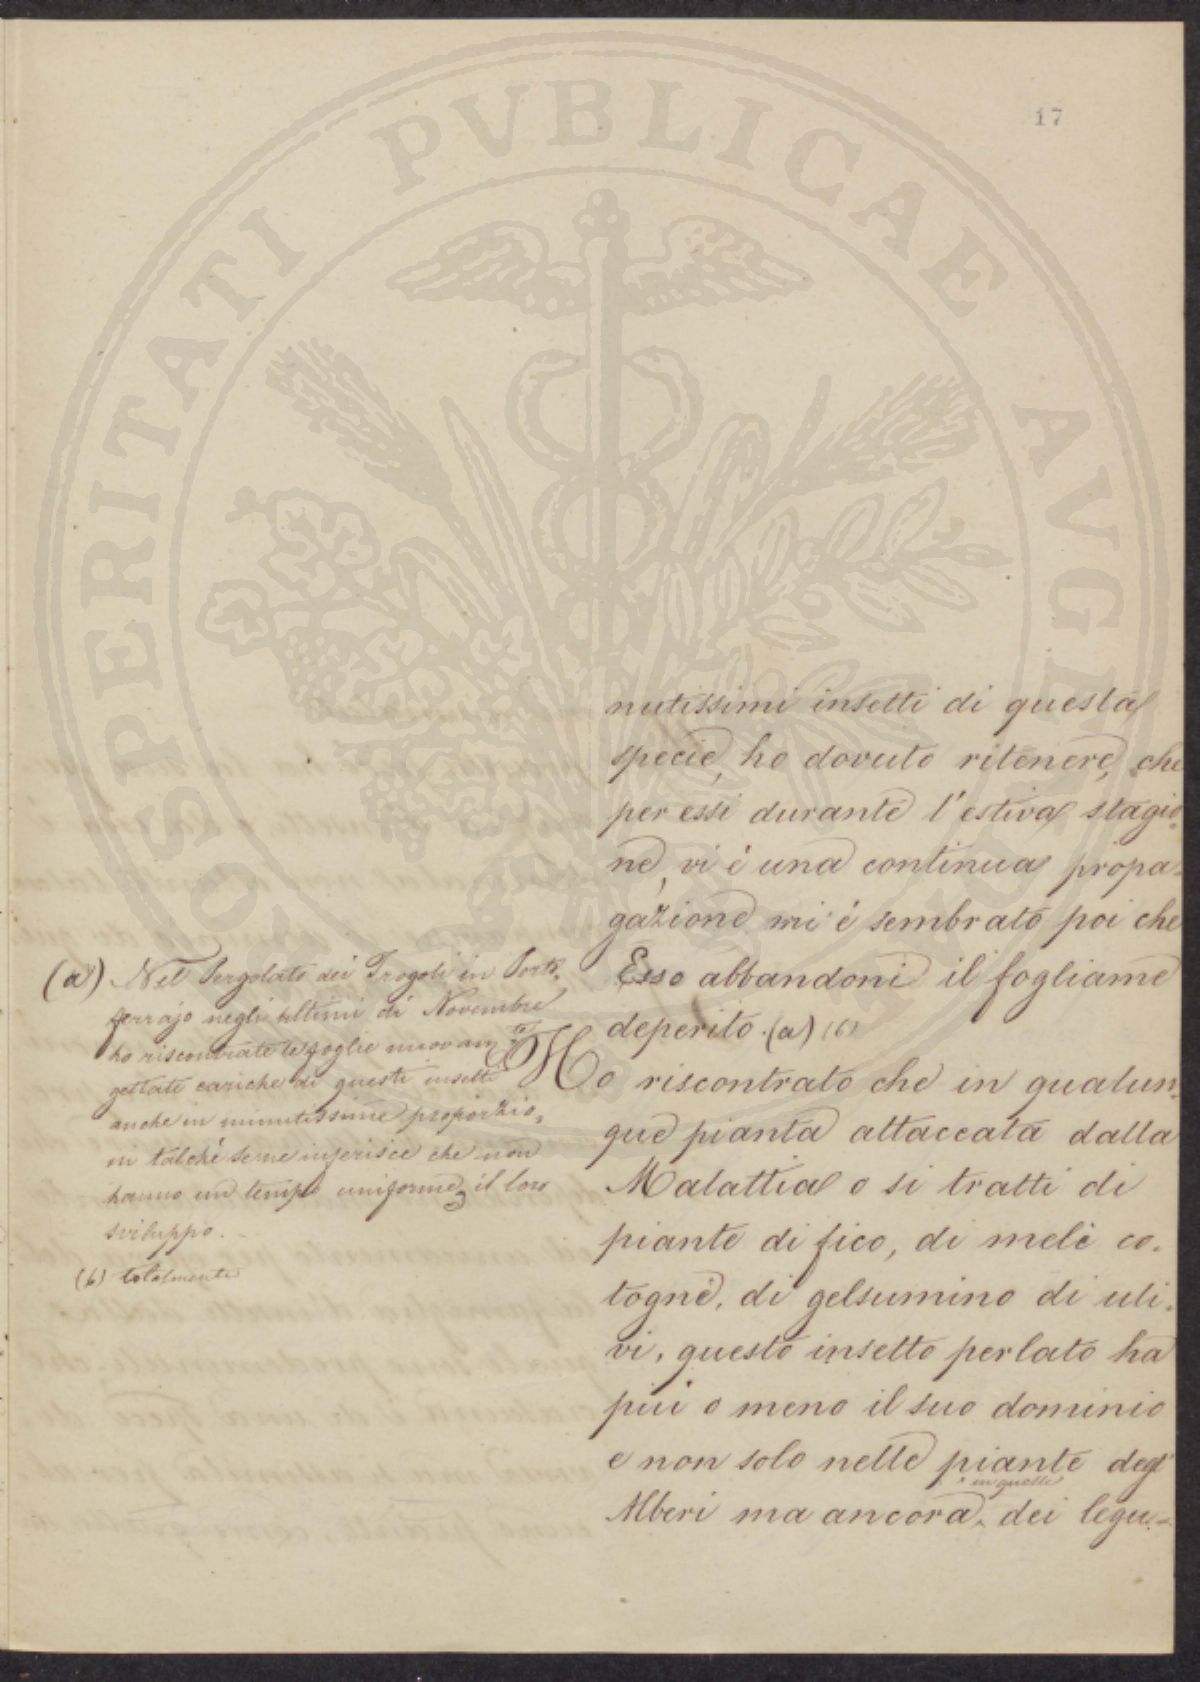 17
PROSPERITATI PVBLICAE AVGENDAE
nutissimi insetti di questa
specie, ho dovuto ritenere, che
per essi durante l'estiva stagio-
ne, vi è una continua propa-
gazione mi è sembrato poi che
Esso abbandoni il fogliame
deperito. (a) (b)
Ho riscontrato che in qualun-
que pianta attaccata dalla
Malattia o si tratti di
piante di fico, di mele co-
togne, di gelsumino di uli-
vi, questo insetto perlato ha
più o meno il suo dominio
e non solo nelle piante degl'
in quelle
Alberi ma ancora dei legu-
(a) Nel Pergolato dei Trogoli in Porto-
ferrajo negli ultimi di Novembre
ho riscontrate le foglie nuovam.te
gettate cariche di questi insetti
anche in minutissime proporzio-
ni talché se ne inferisce che non
hanno un tempo uniforme il loro
sviluppo.
(b) totalmente